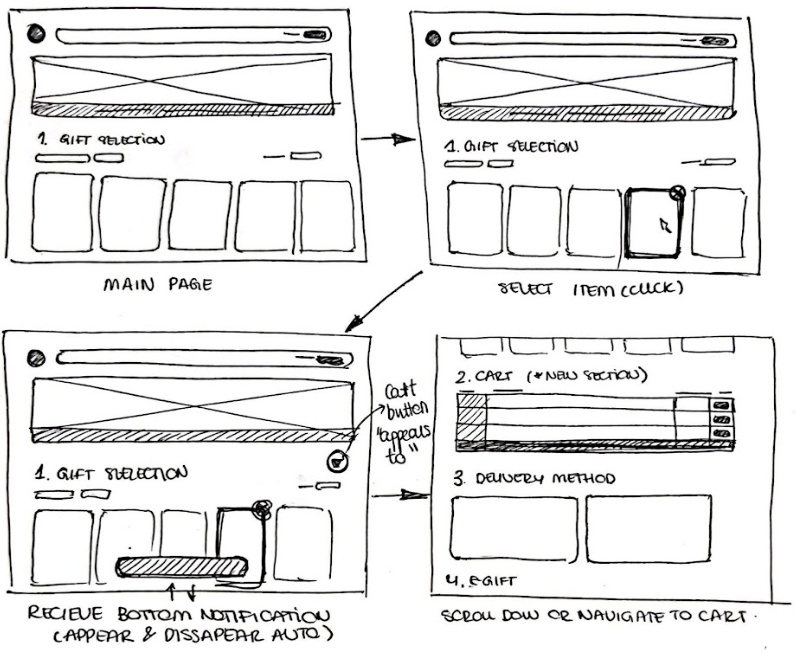 1. GIFT SELECTION
MAIN PAGE
1. GIFT SELECTION
SELECT ITEM (CLICK)
Cart
button
"appears
to"
1. GIFT SELECTION
RECIEVE BOTTOM NOTIFICATION
(APPEAR & DISSAPEAR AUTO)
2. CART (*NEW SECTION)
3. DELIVERY METHOD
4. E-GIFT
SCROLL DOW OR NAVIGATE TO CART.